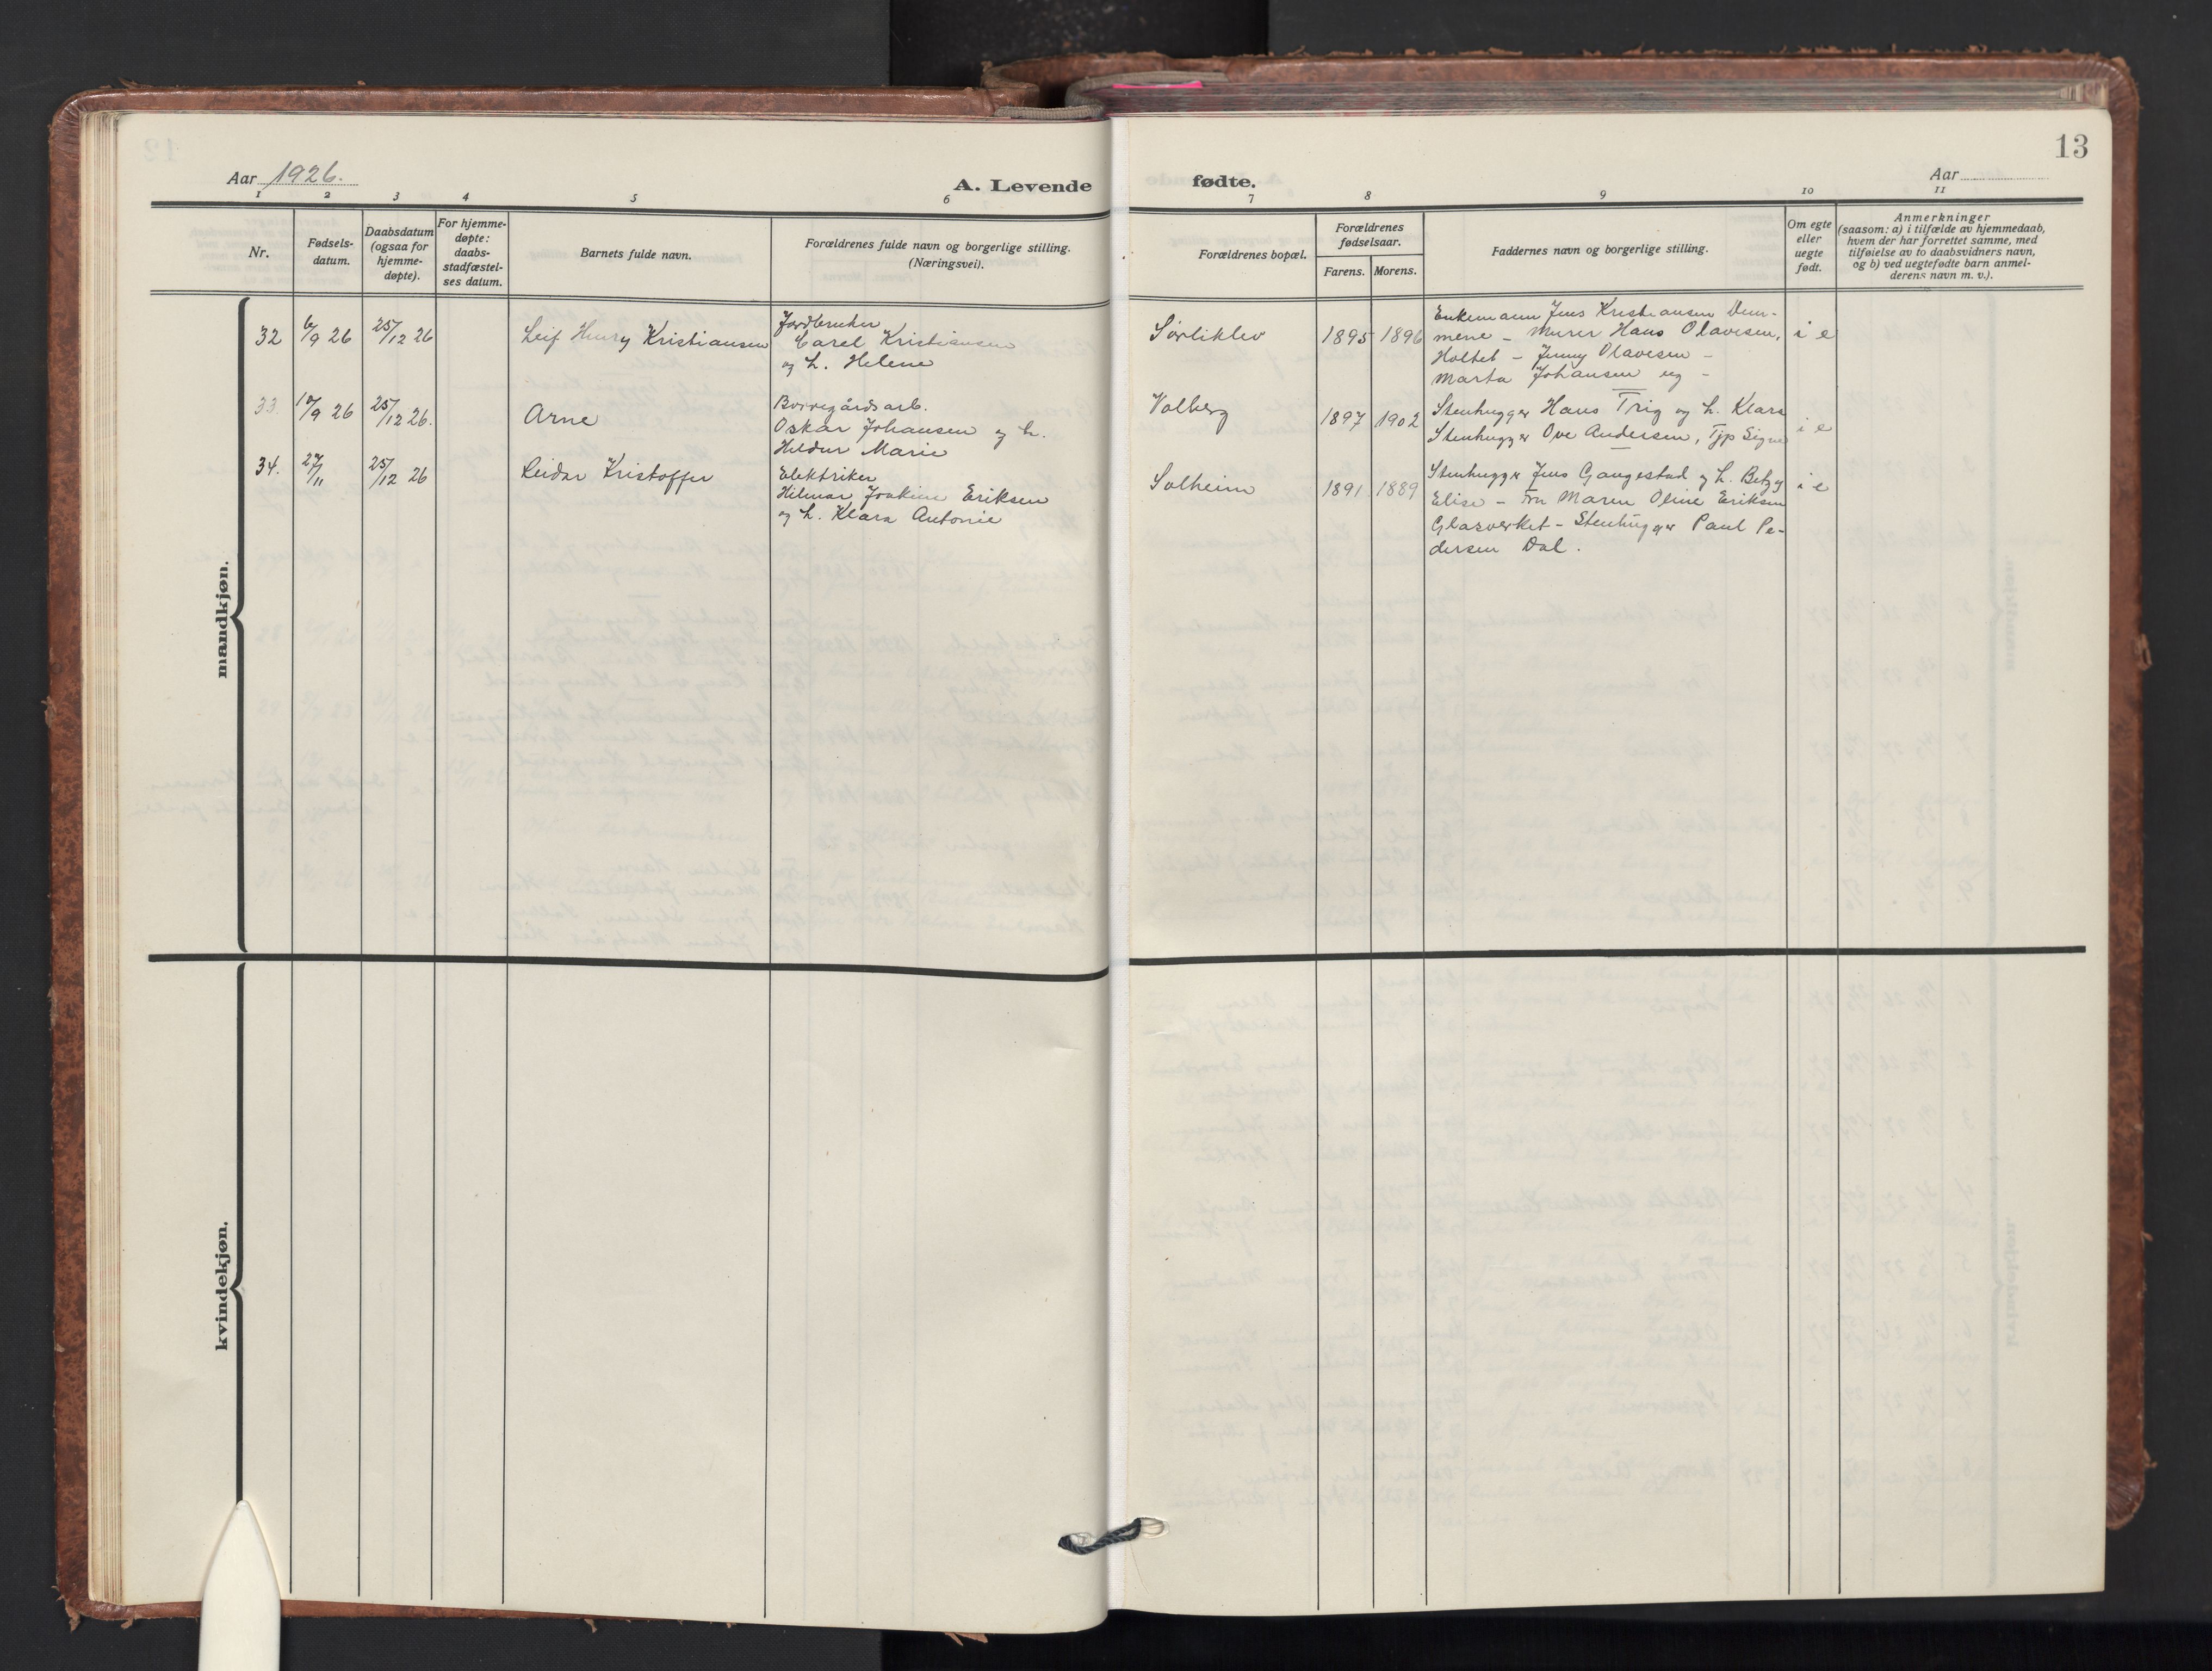 13
Aar 1926.
A. Levende
fødte.
Aar
1 2 3 4 5 6 7 8 9 10 11
Nr.
Fødsels-
datum.
Daabsdatum
(ogsaa for
hjemme-
døpte).
For hjemme-
døpte:
daabs-
stadfæstel-
ses datum.
Barnets fulde navn.
Forældrenes fulde navn og borgerlige stilling.
(Næringsvei).
Forældrenes bopæl.
Forældrenes
fødselsaar.
Farens. Morens.
Faddernes navn og borgerlige stilling.
Om egte
eller
uegte
født.
Anmerkninger
(saasom: a) i tilfælde av hjemmedaab,
hvem der har forrettet samme, med
tilføielse av to daabsvidners navn,
og b) ved uegtefødte barn anmel-
derens navn m. v.).
mandkjøn.
32
6/9 26
25/12 26
Leif Henry Kristiansen
Jordbruker
Carel Kristiansen
og h. Helene
Sørliklev
1895 1896
Enkemann Jens Kristiansen Dem-
mene - Murer Hans Olavesen,
Holtet - Jenny Olavesen -
Marta Johansen ug -
i e
33.
17/9 26
25/12 26.
Arne
Borregårdsarb.
Oskar Johansen og h.
Heldur Marie
Volberg
1897 1902
Stenhugger Hans Trig og h. Klara
Stenhugger Ove Andersen, Tjp Signe
i e
34.
27/11
25/12 26
Reidar Kristoffer
Elektriker
Hilmar Joakim Eriksen
og h. Klara Antonie
Solheim
1891 1889
Stenhugger Jens Gangestad og h. Betzy
Elise - Fru Maren Oline Eriksen
Glasverket - Stenhugger Paul Pe-
dersen Dal.
i e
kvindekjøn.